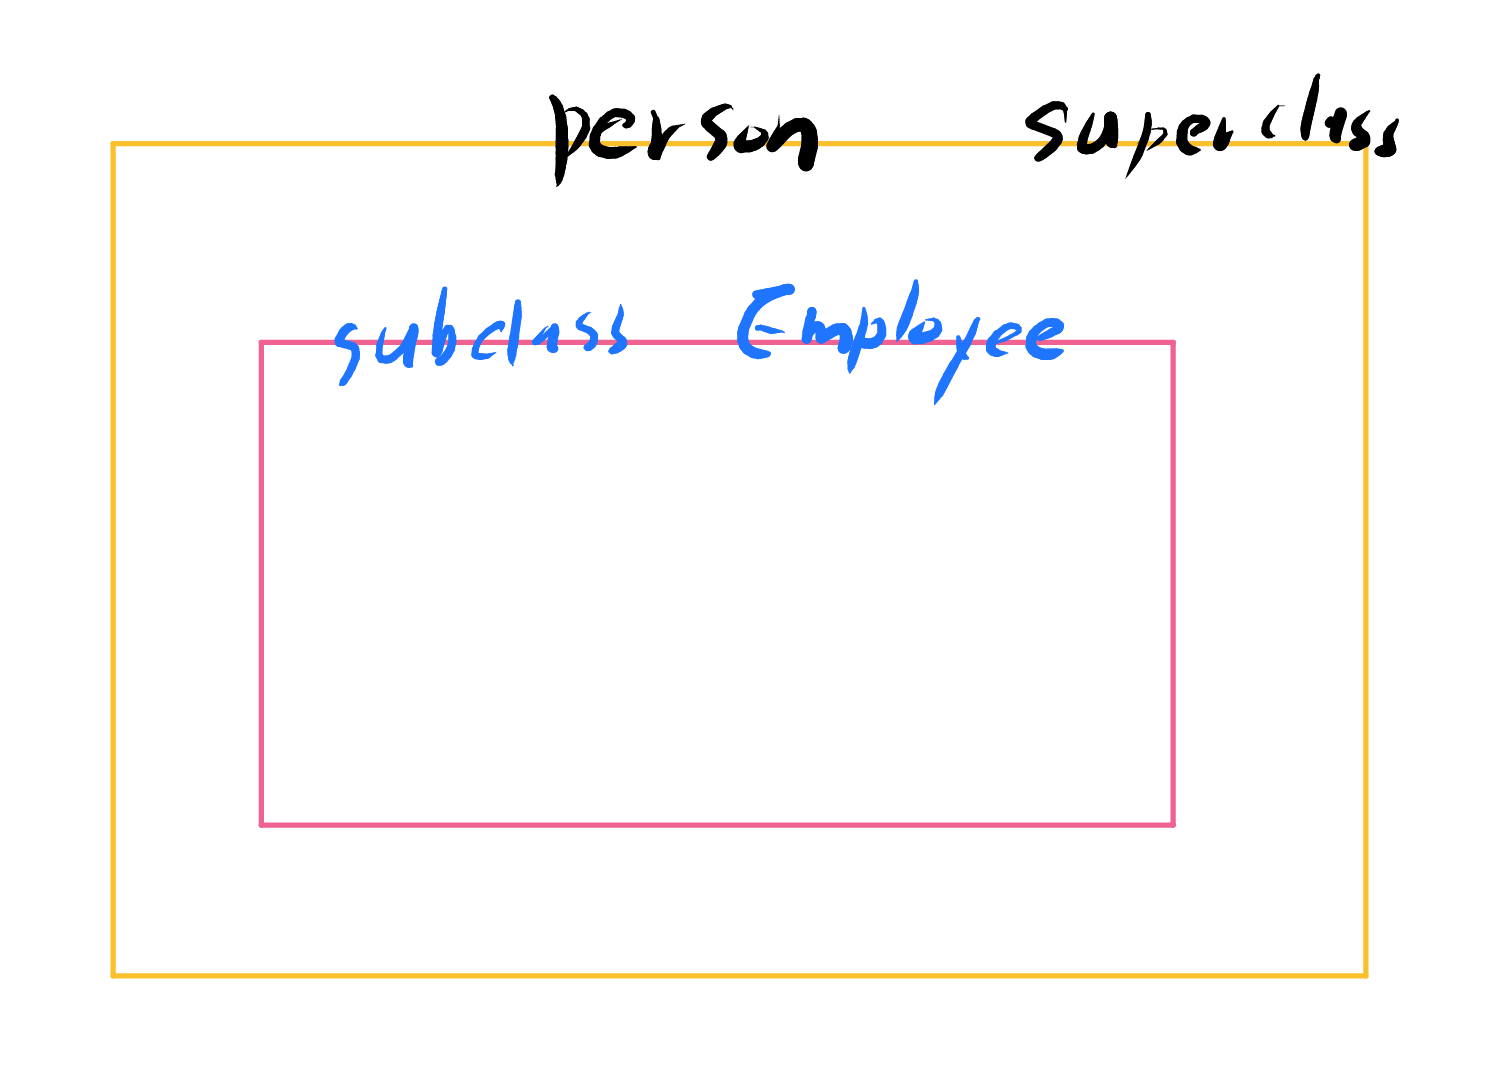 person superclass
subclass Employee